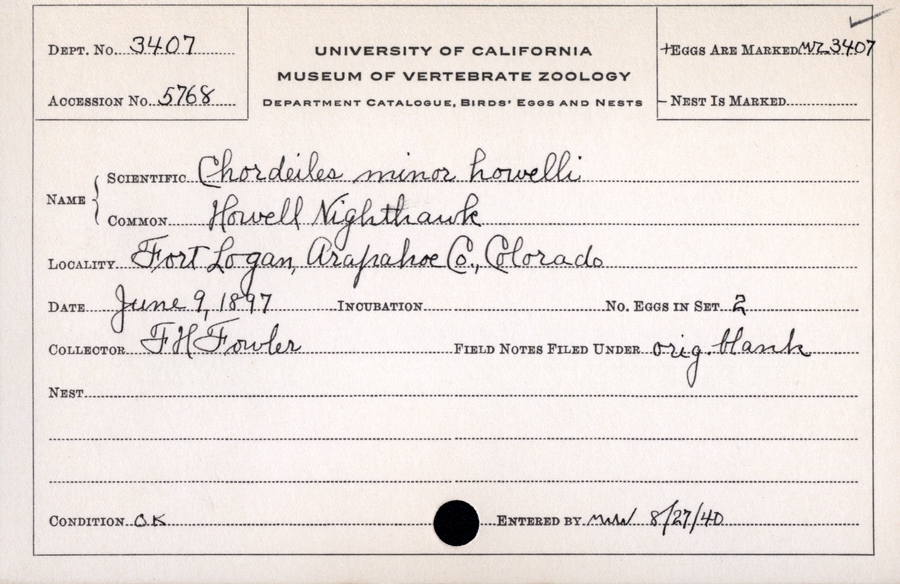 Dept. No. 3407
UNIVERSITY OF CALIFORNIA
+Eggs Are Marked WZ 3407
MUSEUM OF VERTEBRATE ZOOLOGY
Accession No. 5768
Department Catalogue, Birds' Eggs and Nests
- Nest Is Marked
Name { Scientific Chordeiles minor howelli
Common Howell Nighthawk
Locality Fort Logan, Arapahoe Co., Colorado
Date June 9, 1897 Incubation No. Eggs in Set 2
Collector F H Fowler Field Notes Filed Under orig. blank
Nest
Condition OK Entered by 8/27/40